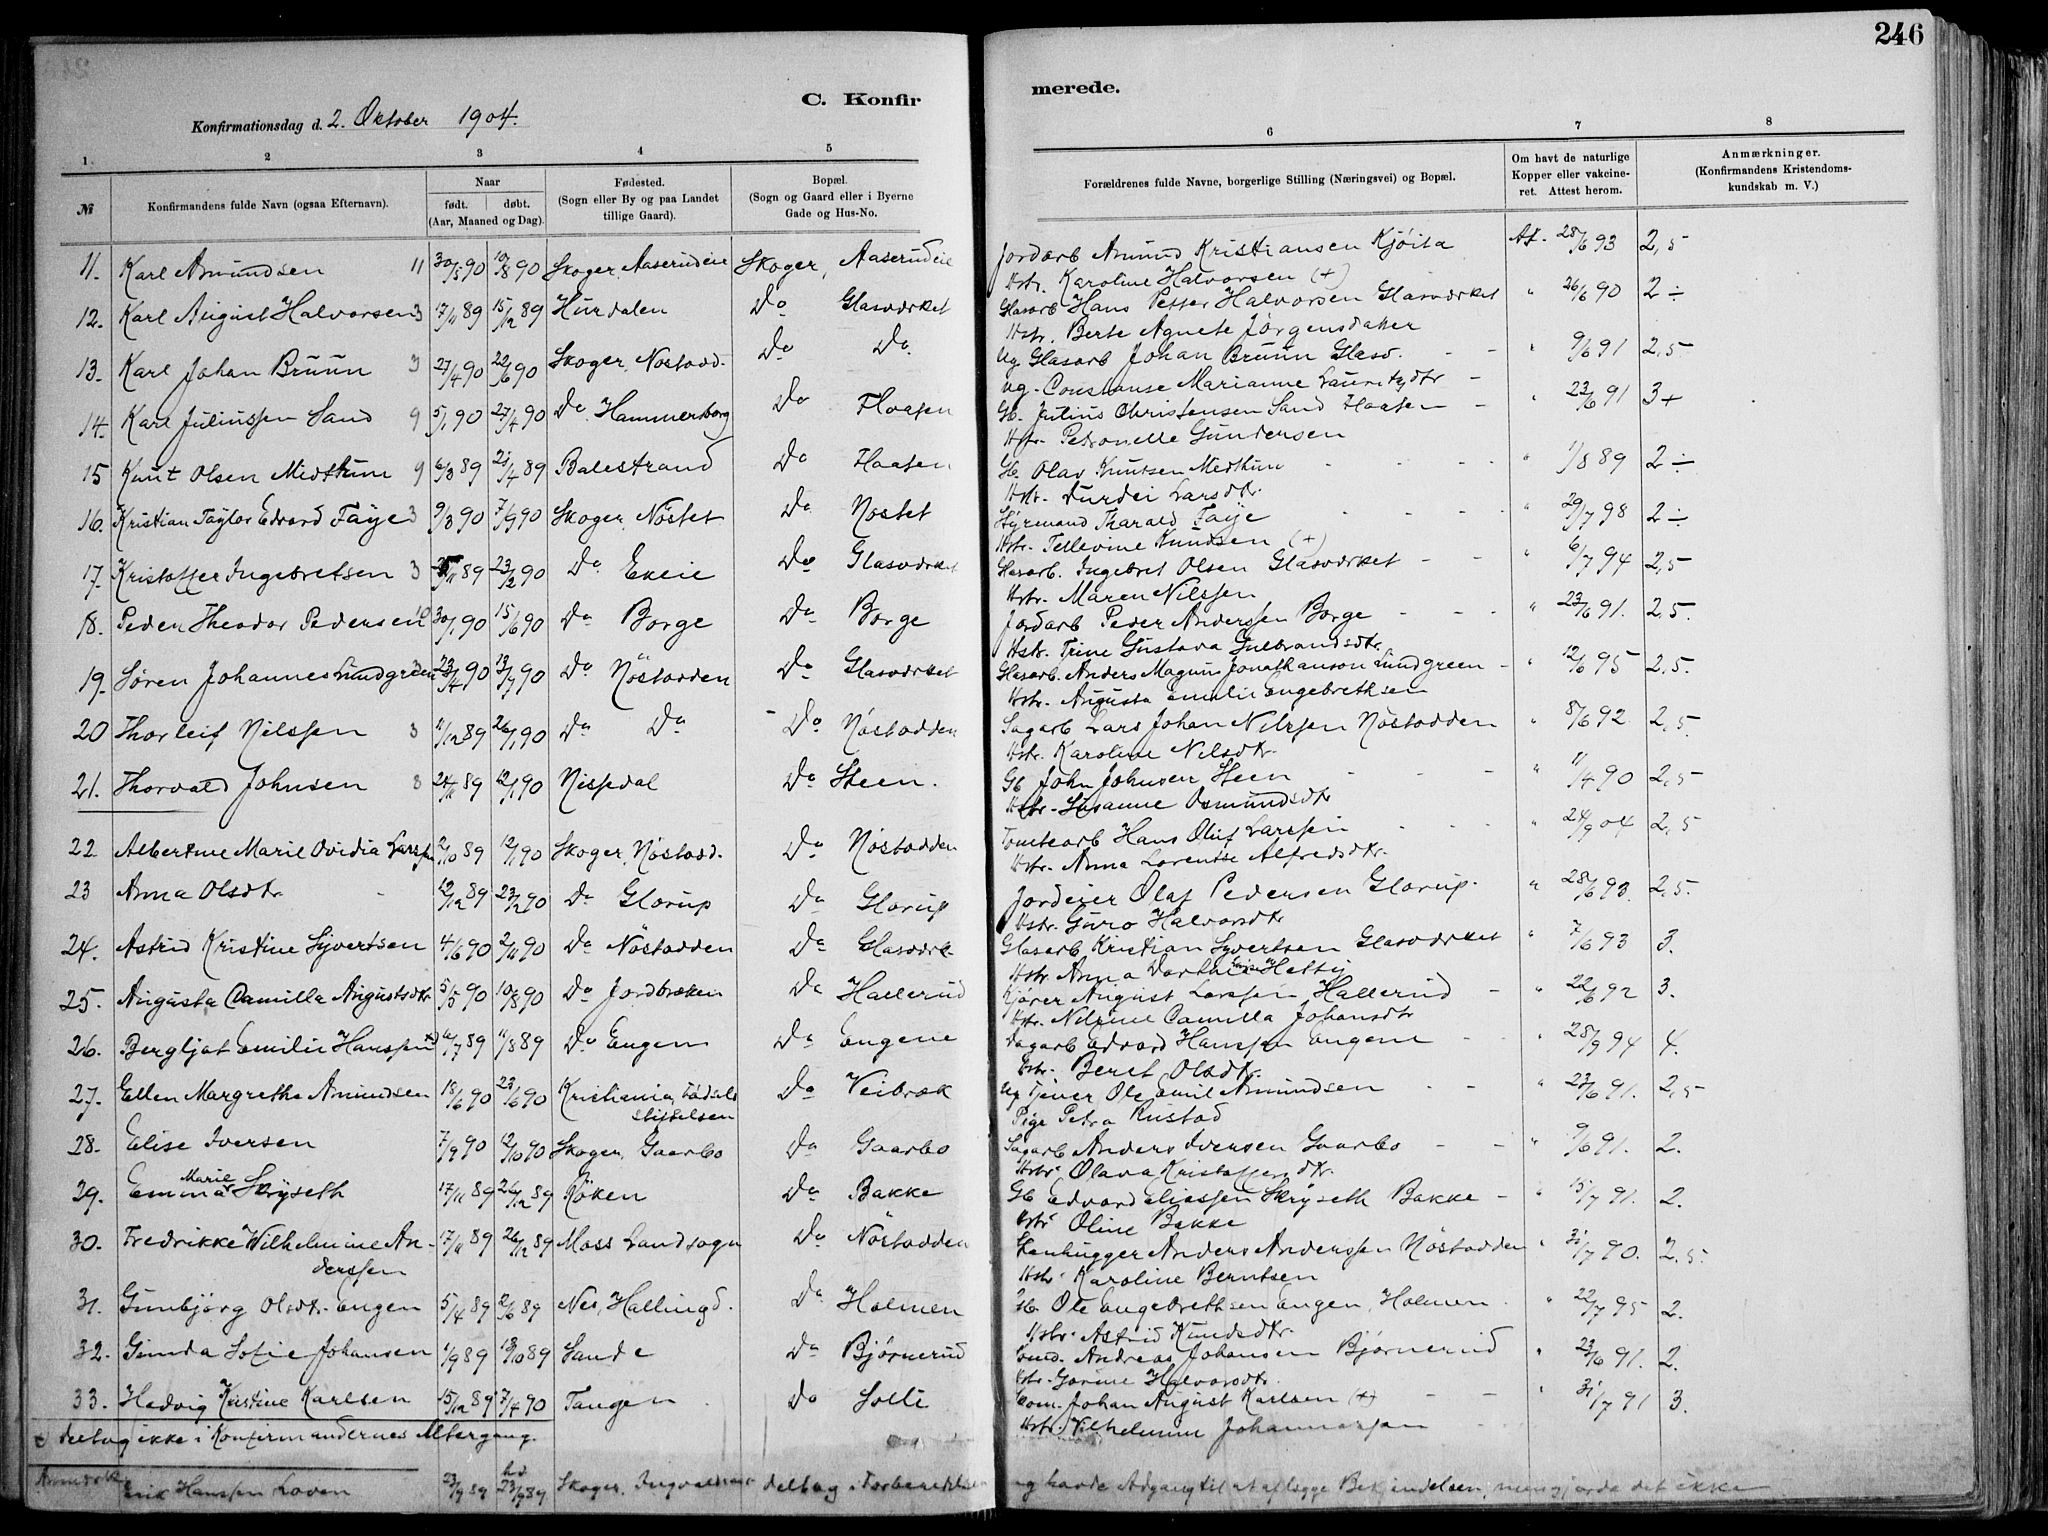 246
C. Konfirmerede.
Konfirmationsdag d. 2. Oktober 1904.
1. 2 3 4 5 6 7 8
№
Konfirmandens fulde Navn (ogsaa Efternavn).
Naar
født. døbt.
(Aar, Maaned og Dag).
Fødested.
(Sogn eller By og paa Landet
tillige Gaard).
Bopæl.
(Sogn og Gaard eller i Byerne
Gade og Hus-No.
Forældrenes fulde Navne, borgerlige Stilling (Næringsvei) og Bopæl.
Om havt de naturlige
Kopper eller vakcine-
ret. Attest herom.
Anmærkninger.
(Konfirmandens Kristendoms-
kundskab m. V.)
11. Karl Amundsen 11 30/5 90 10/8 90 Skoger, Aaserudeie Skoger, Aaserudeie Jordarb Amund Kristiansen Kjöita At. 28/6 93 2,5
Hstr. Karoline Halvorsen (+)
12. Karl August Halvorsen 3 17/11 89 15/12 89 Hurdalen Do Glasværket Glasarb Hans Petter Halvorsen Glasværket " 26/6 90 2 ÷
Hstr. Berte Agnete Jørgensdatter
13. Karl Johan Bruun 3 27/4 90 22/6 90 Skoger, Nöstodd. Do Do Ug Glasarb Johan Bruun Glasv. " 9/6 91 2,5
ug. Constanse Marianne Lauritzdtr
14. Karl Juliussen Sand 9 5/1 90 27/4 90 Do Hammersborg Do Haasen Gb. Julius Christensen Sand Haasen " 23/6 91 3+
Hstr. Petronelle Gundersen
15 Knut Olsen Midthun 9 6/3 89 21/4 89 Balestrand Do Haasen Gb. Olav Knutsen Medthun " 1/8 89 2 ÷
Hstr. Durdei Larsdtr.
16. Kristian Taylor Edvard Faye 3 9/3 90 7/9 90 Skoger, Nöstet Do Nöstet Styrmand Tharald Faye " 29/7 98 2 ÷
Hstr. Tellevine Knudsen (+)
17. Kristoffer Ingebretsen 3 /11 89 23/2 90 Do Ekeie Do Glasværket Glasarb. Ingebret Olsen Glasværket " 6/7 94 2,5
Hstr. Maren Nilssen
18. Peder Theodor Pedersen 10 30/1 90 15/6 90 Do Borge Do Borge Jordarb Peder Anderssen Borge " 23/6 91. 2,5.
Hstr. Trine Gustava Gulbrandsdtr.
19. Søren Johannes Lundgreen 3 23/4 90 13/7 90 Do Nöstodden Do Glasværket Glasarb. Anders Magnus Jonathanson Lundgreen " 12/6 95 2.5.
Hstr. Augusta Emilie Engebrethsen
20 Thorleif Nilssen 3 4/12 89 26/1 90 Do Do Do Nöstodden Sagarb Lars Johan Nilssen Nöstodden " 8/6 92 2,5.
Hstr. Karoline Nilsdtr.
21. Thorvald Johnsen 8 24/11 89 12/1 90 Nissedal Do Steen. Gb John Johnsen Steen " 11/4 90 2,5
Hstr. Susanne Osmundsdtr
22. Albertine Marie Ovidia Larssen 2/10 89 12/1 90 Skoger, Nöstodd. Do Nöstodden Tomtearb Hans Oluf Larssen " 24/9 04 2,5
Hstr. Anna Lorentse Alfredsdtr.
23 Anna Olsdtr. 13/12 89 23/2 90 Do Glorup Do Glorup Jordeier Olaf Pedersen Glorup. " 28/6 93. 2,5.
Hstr. Guro Halvorsdtr
24. Astrid Kristine Syvertsen 4/6 90 2/11 90 Do Nöstodden Do Glasværk. Glasarb Kristian Syvertsen Glasværket " 7/6 93 3.
Hstr. Anna Dorthea Hellij
25. Augusta Camilla Augustsdtr 5/5 90 10/8 90 Do Jordbrækken Do Hallerud Kjører August Larssen Hallerud " 22/6 92 3.
Hstr. Nilsine Camilla Johansdtr
26. Bergljot Emilie Hanssen x) 6/7 89 11/8 89 Do Engene Do Engene Dagarb Edvard Hanssen Engene " 28/9 94 4.
Hstr. Beret Olsdtr.
27. Ellen Margrethe Amundsen 18/6 90 23/6 90 Kristiania Födsels Do Veibrok ug Tjener Ole Emil Amundsen " 23/6 91. 2,5
stiftelsen Pige Petra Rustad
28. Elise Iversen 7/9 90 12/10 90 Skoger, Gaarbo Do Gaarbo Sagarb Anders Iversen Gaarbo " 9/6 91. 2.
Hstr. Olava Kristoffersdtr.
29. Emma Marie Skryseth 17/11 89 26/12 89 Röken Do Bakke Gb Edvard Eliassen Skryseth Bakke " 15/7 91. 2.
Hstr. Oline Bakke
30. Fredrikke Wilhelmine An- 17/11 89 26/12 89 Moss Landsogn Do Nöstodden Stenhugger Anders Anderssen Nöstodden " 31/7 90. 2.5.
derssen Hstr. Karoline Berntsen
31. Gunbjörg Olsdtr. Engen 5/4 89 2/6 89 Nes, Hallingd. Do Holmen Gb. Ole Engebrethsen Engen, Holmen " 22/7 95 2.
Hstr. Astrid Knudsdtr.
32. Gunda Sofie Johansen 1/9 89 13/10 89 Sande Do Bjørnerud Andreas Johansen Bjørnerud " 23/6 91. 2.
Hstr. Gorine Halvorsdtr.
33. Hedvig Kristine Karlsen 15/12 89 7/4 90 Tangen Do Solli Johan August Karlsen (+) " 31/7 91 3.
Hstr. Vilhelmine Johannessen
x) deltog ikke i Konfirmandernes Altergang.
Anmærk. Erik Hanssen Loven 23/9 89 hd 23/9 89 Skoger, deltog i Forberedelsen og havde Adgang til at aflægge Bekjendelsen, men gjorde det ikke